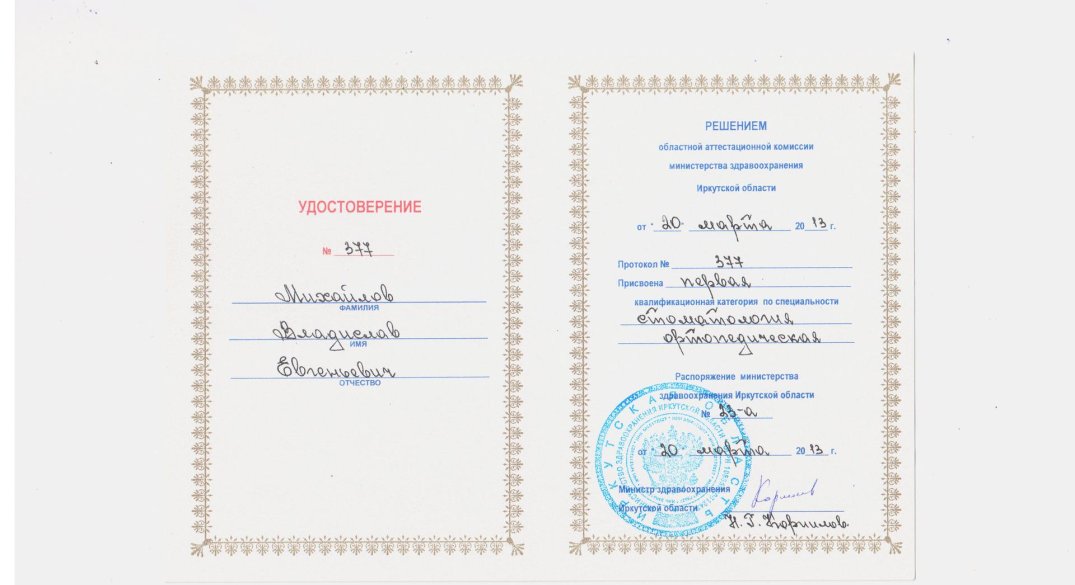 УДОСТОВЕРЕНИЕ
№ 377
Михайлов
ФАМИЛИЯ
Владислав
ИМЯ
Евгеньевич
ОТЧЕСТВО
РЕШЕНИЕМ
областной аттестационной комиссии
министерства здравоохранения
Иркутской области
от 20 марта 2013 г.
Протокол № 377
Присвоена первая
квалификационная категория по специальности
стоматология
ортопедическая
Распоряжение министерства
здравоохранения Иркутской области
№ 33-а
от 20 марта 2013 г.
Министр здравоохранения
Иркутской области
Н.Г. Корнилов
ИРКУТСКАЯ ОБЛАСТЬ